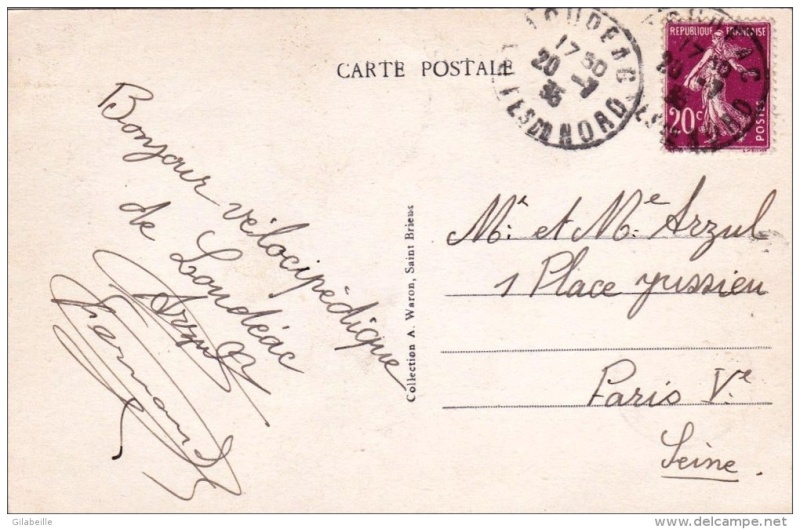 CARTE POSTALE
LOUDEAC
17 30
20 -9
35
CTES DU NORD
REPUBLIQUE FRANÇAISE
20c
POSTES
Bonjour vélocipédique
de Loudéac
Arzul
Fernand
Collection A. Waron, Saint Brieuc
Mr. et Me. Arzul
1 Place jussieu
Paris Ve
Seine.
Gilabeille
delcampe.net